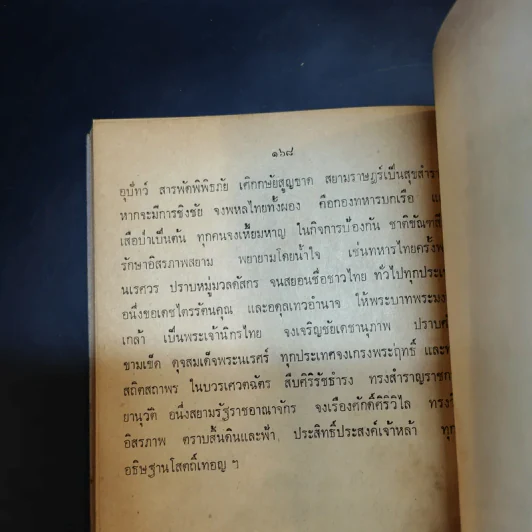 ๑๖๘
อุบัทว์ สารพัดพิพิธภัย เศิกกษัยสูญขาด สยามราษฎร์เป็นสุขสำรา
หากจะมีการชิงชัย จงพหลไทยทั้งผอง คือกองทหารบกเรือ แ
เสือป่าเป็นต้น ทุกคนจงเหี้ยมหาญ ในกิจการป้องกัน ชาติขัณฑสี
รักษาอิสรภาพสยาม พยายามโดยน้ำใจ เช่นทหารไทยครั้งพ
นเรศวร ปราบหมู่มวลดัสกร จนสยอนชื่อชาวไทย ทั่วไปทุกประเ
อนึ่งขอเดชไตรรัตนคุณ และอดุลเทวอำนาจ ให้พระบาทพระมง
เกล้า เป็นพระเจ้านิกรไทย จงเจริญชัยเดชานุภาพ ปราบศั
ขามเข็ด ดุจสมเด็จพระนเรศร์ ทุกประเทศจงเกรงพระฤทธิ์ และ
สถิตสถาพร ในบวรเศวตฉัตร สืบศิริรัชธำรง ทรงสำราญราชก
ยานุวัติ อนึ่งสยามรัฐราชอาณาจักร จงเรืองศักดิ์ศิริวิไล ทรงวิ
อิสรภาพ ตราบสิ้นดินและฟ้า ประสิทธิ์ประสงค์เจ้าหล้า ทุก
อธิษฐานโสตถิ์เทอญ ฯ